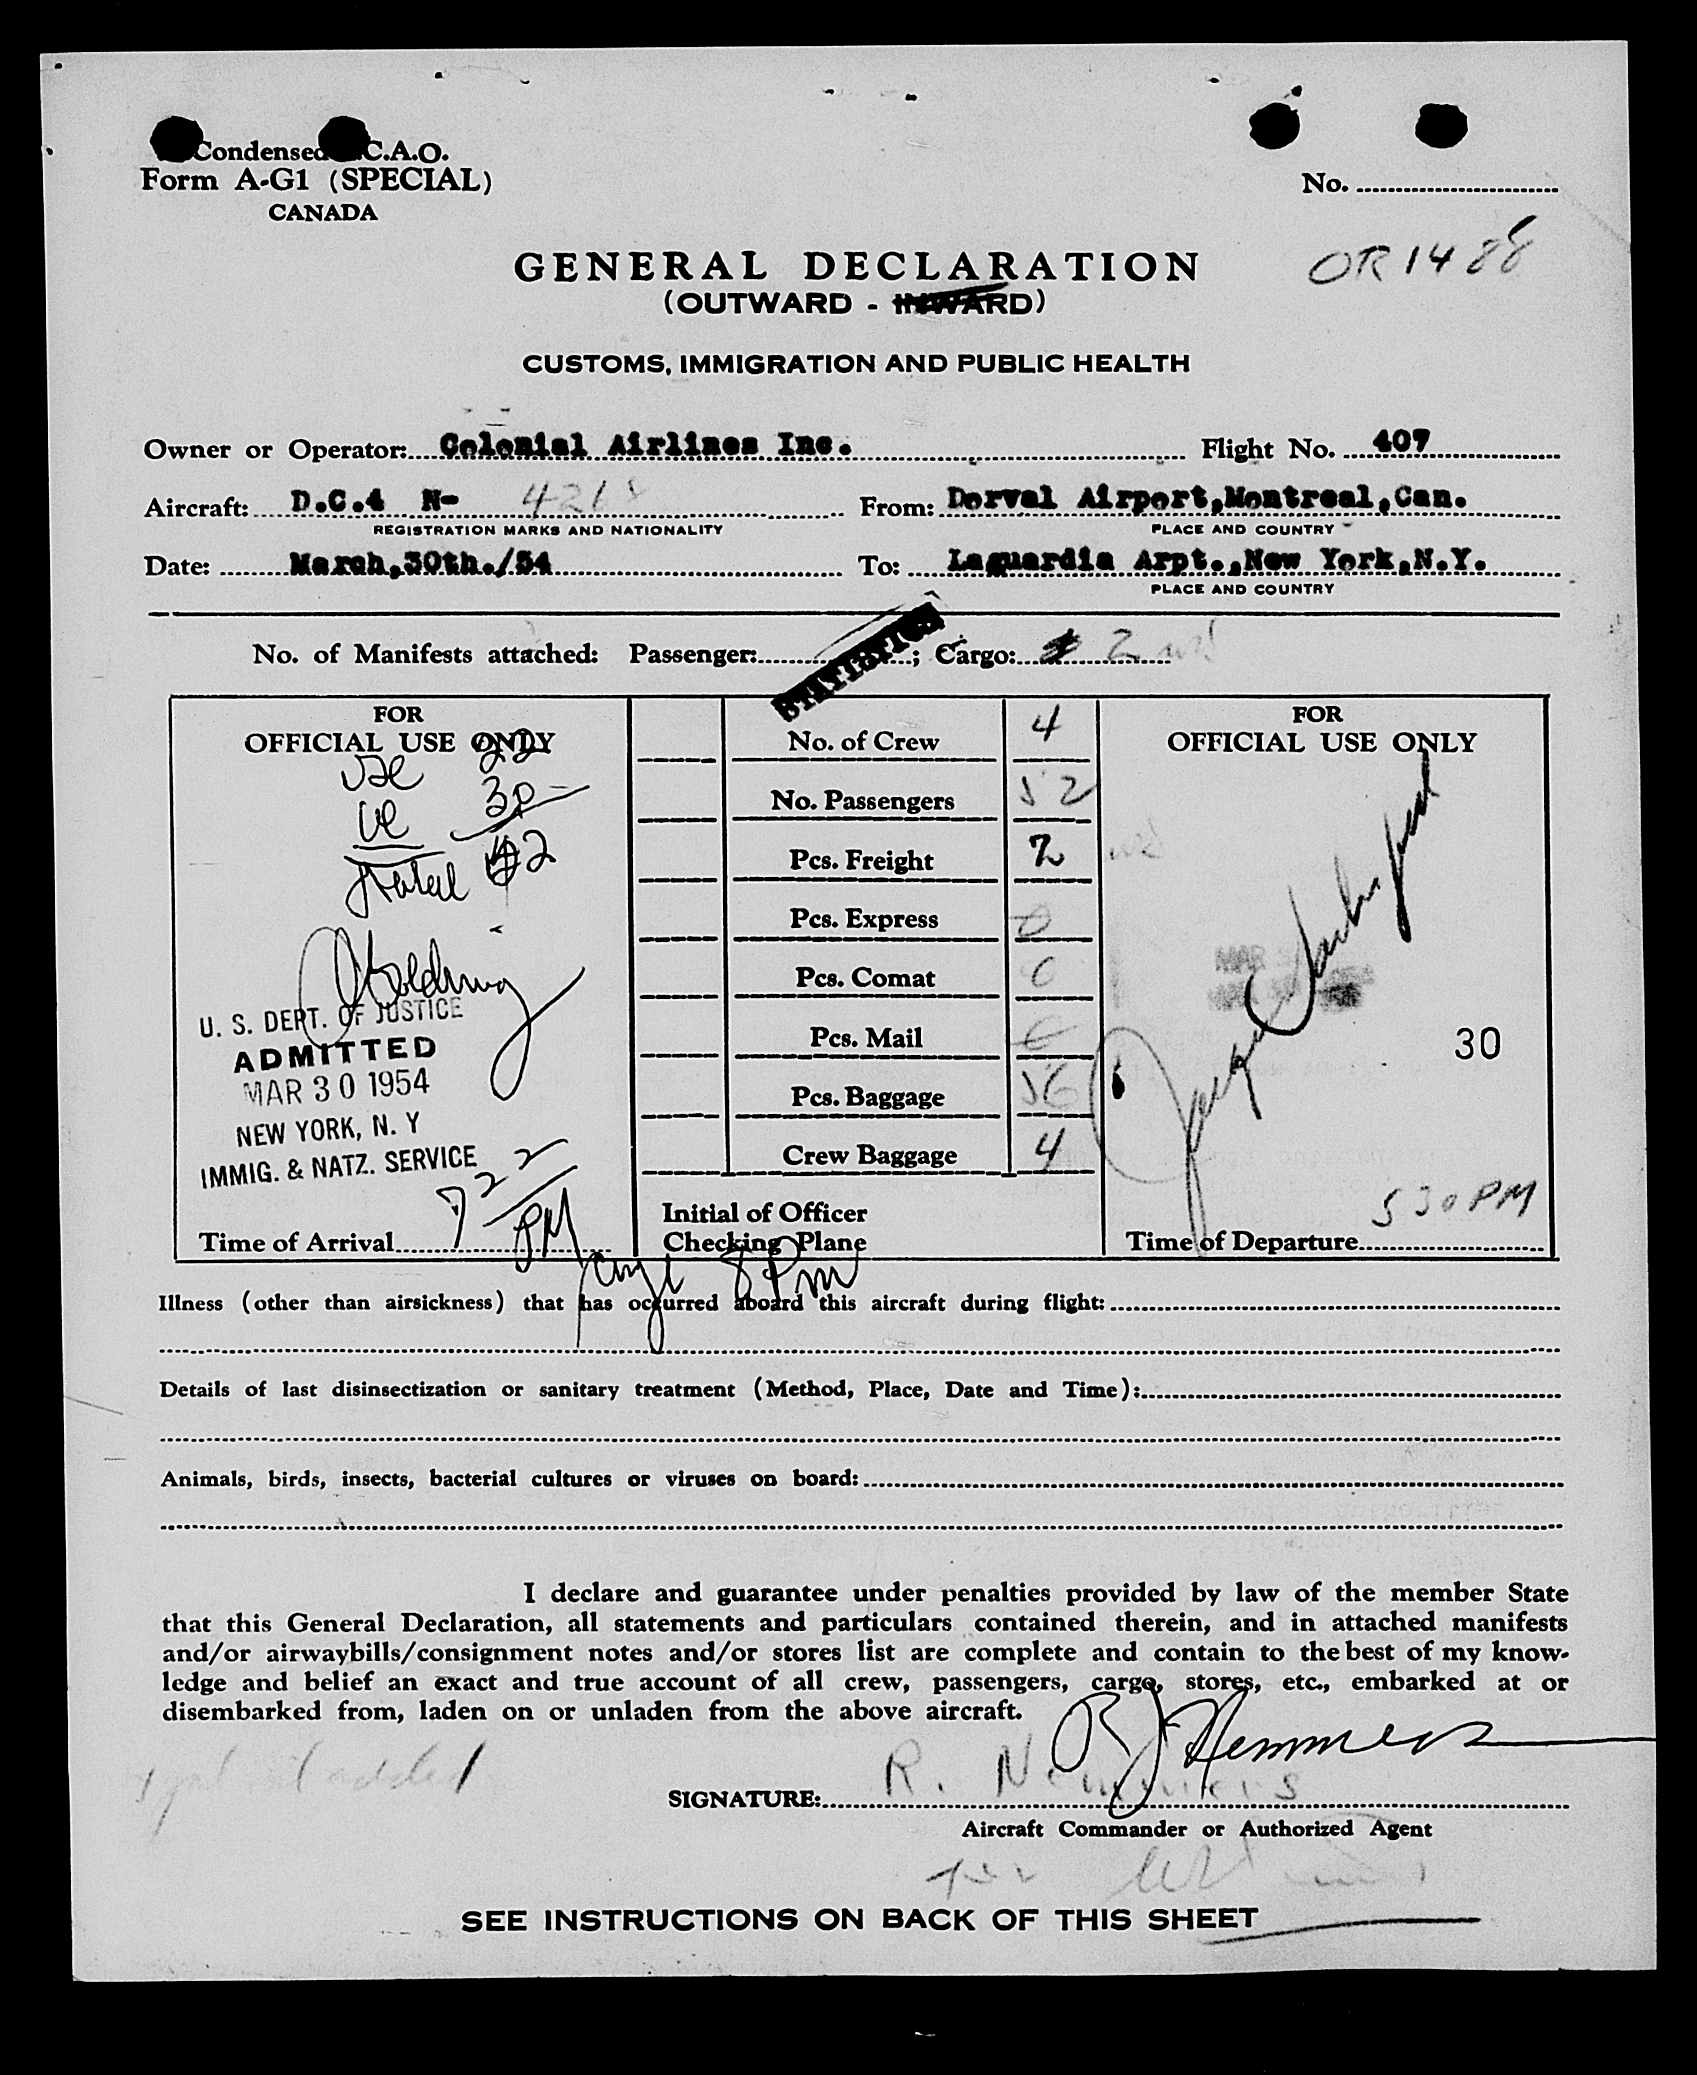 Condensed C.A.O.
Form A-G1 (SPECIAL)
CANADA
No.
OR 1488
GENERAL DECLARATION
(OUTWARD - INWARD)
CUSTOMS, IMMIGRATION AND PUBLIC HEALTH
Owner or Operator: Colonial Airlines Inc. Flight No. 407
Aircraft: D.C.4 N- 421 From: Dorval Airport,Montreal,Can.
REGISTRATION MARKS AND NATIONALITY PLACE AND COUNTRY
Date: March,30th./54 To: Laguardia Arpt.,New York,N.Y.
PLACE AND COUNTRY
No. of Manifests attached: Passenger: ; Cargo: 2
STATISTICS
FOR
OFFICIAL USE ONLY
22
30
Total 42
U. S. DEPT. OF JUSTICE
ADMITTED
MAR 30 1954
NEW YORK, N. Y
IMMIG. & NATZ. SERVICE
Time of Arrival 7 22 PM
No. of Crew 4
No. Passengers 52
Pcs. Freight 2
Pcs. Express 0
Pcs. Comat 0
Pcs. Mail
Pcs. Baggage 56
Crew Baggage 4
Initial of Officer
Checking Plane
8 Pm
FOR
OFFICIAL USE ONLY
MAR
30
Time of Departure 530 PM
Illness (other than airsickness) that has occurred aboard this aircraft during flight:
Details of last disinsectization or sanitary treatment (Method, Place, Date and Time):
Animals, birds, insects, bacterial cultures or viruses on board:
I declare and guarantee under penalties provided by law of the member State
that this General Declaration, all statements and particulars contained therein, and in attached manifests
and/or airwaybills/consignment notes and/or stores list are complete and contain to the best of my know-
ledge and belief an exact and true account of all crew, passengers, cargo, stores, etc., embarked at or
disembarked from, laden on or unladen from the above aircraft.
added
R J Nemmers
SIGNATURE: R. Nemmers
Aircraft Commander or Authorized Agent
SEE INSTRUCTIONS ON BACK OF THIS SHEET